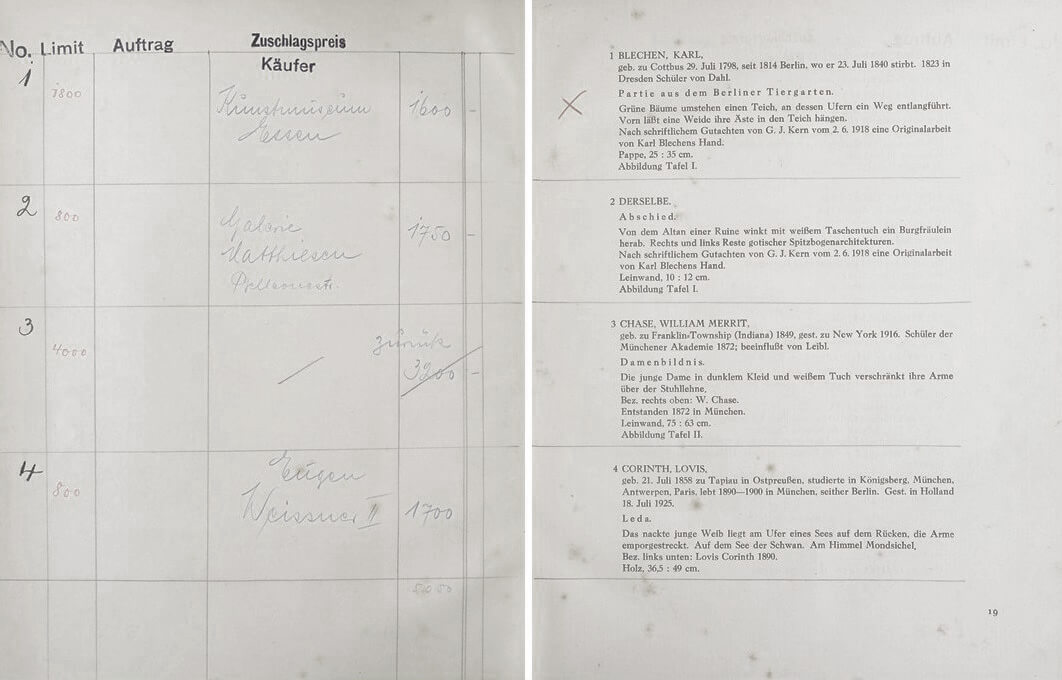 No. Limit Auftrag Zuschlagspreis
Käufer
1 1800 Kunstmuseum 1600 -
Essen
2 800 Galerie 1750 -
Matthiesen
3 4000 zurück
3200 -
4 800 Eugen
II 1700
5050
1 BLECHEN, KARL,
geb. zu Cottbus 29. Juli 1798, seit 1814 Berlin, wo er 23. Juli 1840 stirbt. 1823 in
Dresden Schüler von Dahl.
Partie aus dem Berliner Tiergarten.
Grüne Bäume umstehen einen Teich, an dessen Ufern ein Weg entlangführt.
Vorn läßt eine Weide ihre Äste in den Teich hängen.
Nach schriftlichem Gutachten von G. J. Kern vom 2. 6. 1918 eine Originalarbeit
von Karl Blechens Hand.
Pappe, 25 : 35 cm.
Abbildung Tafel I.
2 DERSELBE.
Abschied.
Von dem Altan einer Ruine winkt mit weißem Taschentuch ein Burgfräulein
herab. Rechts und links Reste gotischer Spitzbogenarchitekturen.
Nach schriftlichem Gutachten von G. J. Kern vom 2. 6. 1918 eine Originalarbeit
von Karl Blechens Hand.
Leinwand, 10 : 12 cm.
Abbildung Tafel I.
3 CHASE, WILLIAM MERRIT,
geb. zu Franklin-Township (Indiana) 1849, gest. zu New York 1916. Schüler der
Münchener Akademie 1872; beeinflußt von Leibl.
Damenbildnis.
Die junge Dame in dunklem Kleid und weißem Tuch verschränkt ihre Arme
über der Stuhllehne.
Bez. rechts oben: W. Chase.
Entstanden 1872 in München.
Leinwand, 75 : 63 cm.
Abbildung Tafel II.
4 CORINTH, LOVIS,
geb. 21. Juli 1858 zu Tapiau in Ostpreußen, studierte in Königsberg, München,
Antwerpen, Paris, lebt 1890—1900 in München, seither Berlin. Gest. in Holland
18. Juli 1925.
Leda.
Das nackte junge Weib liegt am Ufer eines Sees auf dem Rücken, die Arme
emporgestreckt. Auf dem See der Schwan. Am Himmel Mondsichel.
Bez. links unten: Lovis Corinth 1890.
Holz, 36,5 : 49 cm.
19